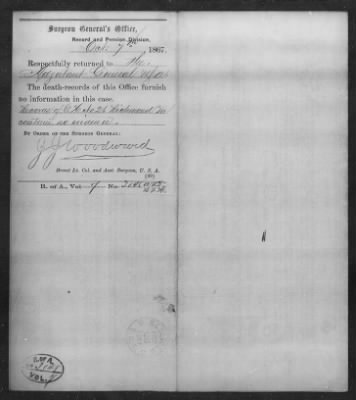 Surgeon General's Office,
Record and Pension Division,
Oct. 7th 1867.
Respectfully returned to the
Adjutant General USA
The death-records of this Office furnish
no information in this case.
Records of C. H. No 26 Richmond
contain no evidence.
By Order of the Surgeon General:
J J Woodward
Brevet Lt. Col. and Asst Surgeon, U. S. A.
R. of A., Vol. No.
VOL.